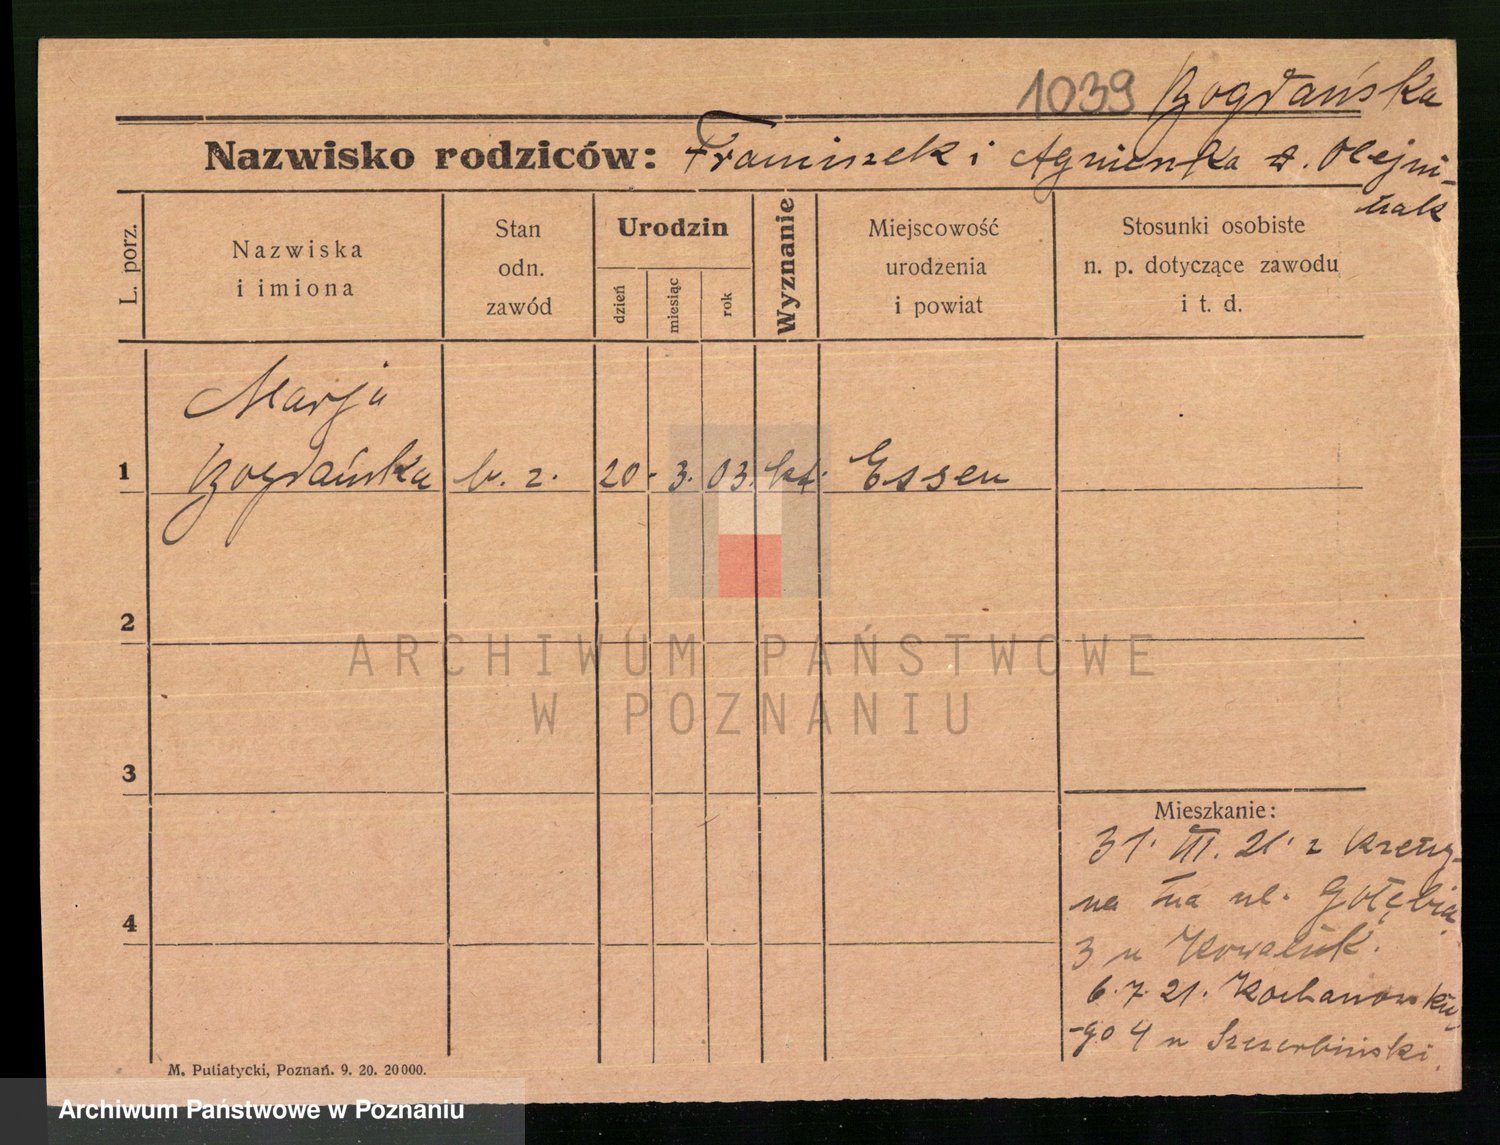 1039 Bogdańska
Nazwisko rodziców: Franciszek i Agnieszka z. Olejni-
czak
L. porz.
Nazwiska
i imiona
Stan
odn.
zawód
Urodzin
dzień
miesiąc
rok
Wyznanie
Miejscowość
urodzenia
i powiat
Stosunki osobiste
n. p. dotyczące zawodu
i t. d.
Marja
1 Bogdańska b. z. 20. 3. 03. kt. Essen
2
ARCHIWUM PAŃSTWOWE
W POZNANIU
3
Mieszkanie:
31. III. 21. z
na ul. Gołębia
4
3 u Kowaluk.
6. 7. 21. Kochanowskie-
go 4 u Szczerbiński.
M. Putiatycki, Poznań. 9. 20. 20000.
Archiwum Państwowe w Poznaniu